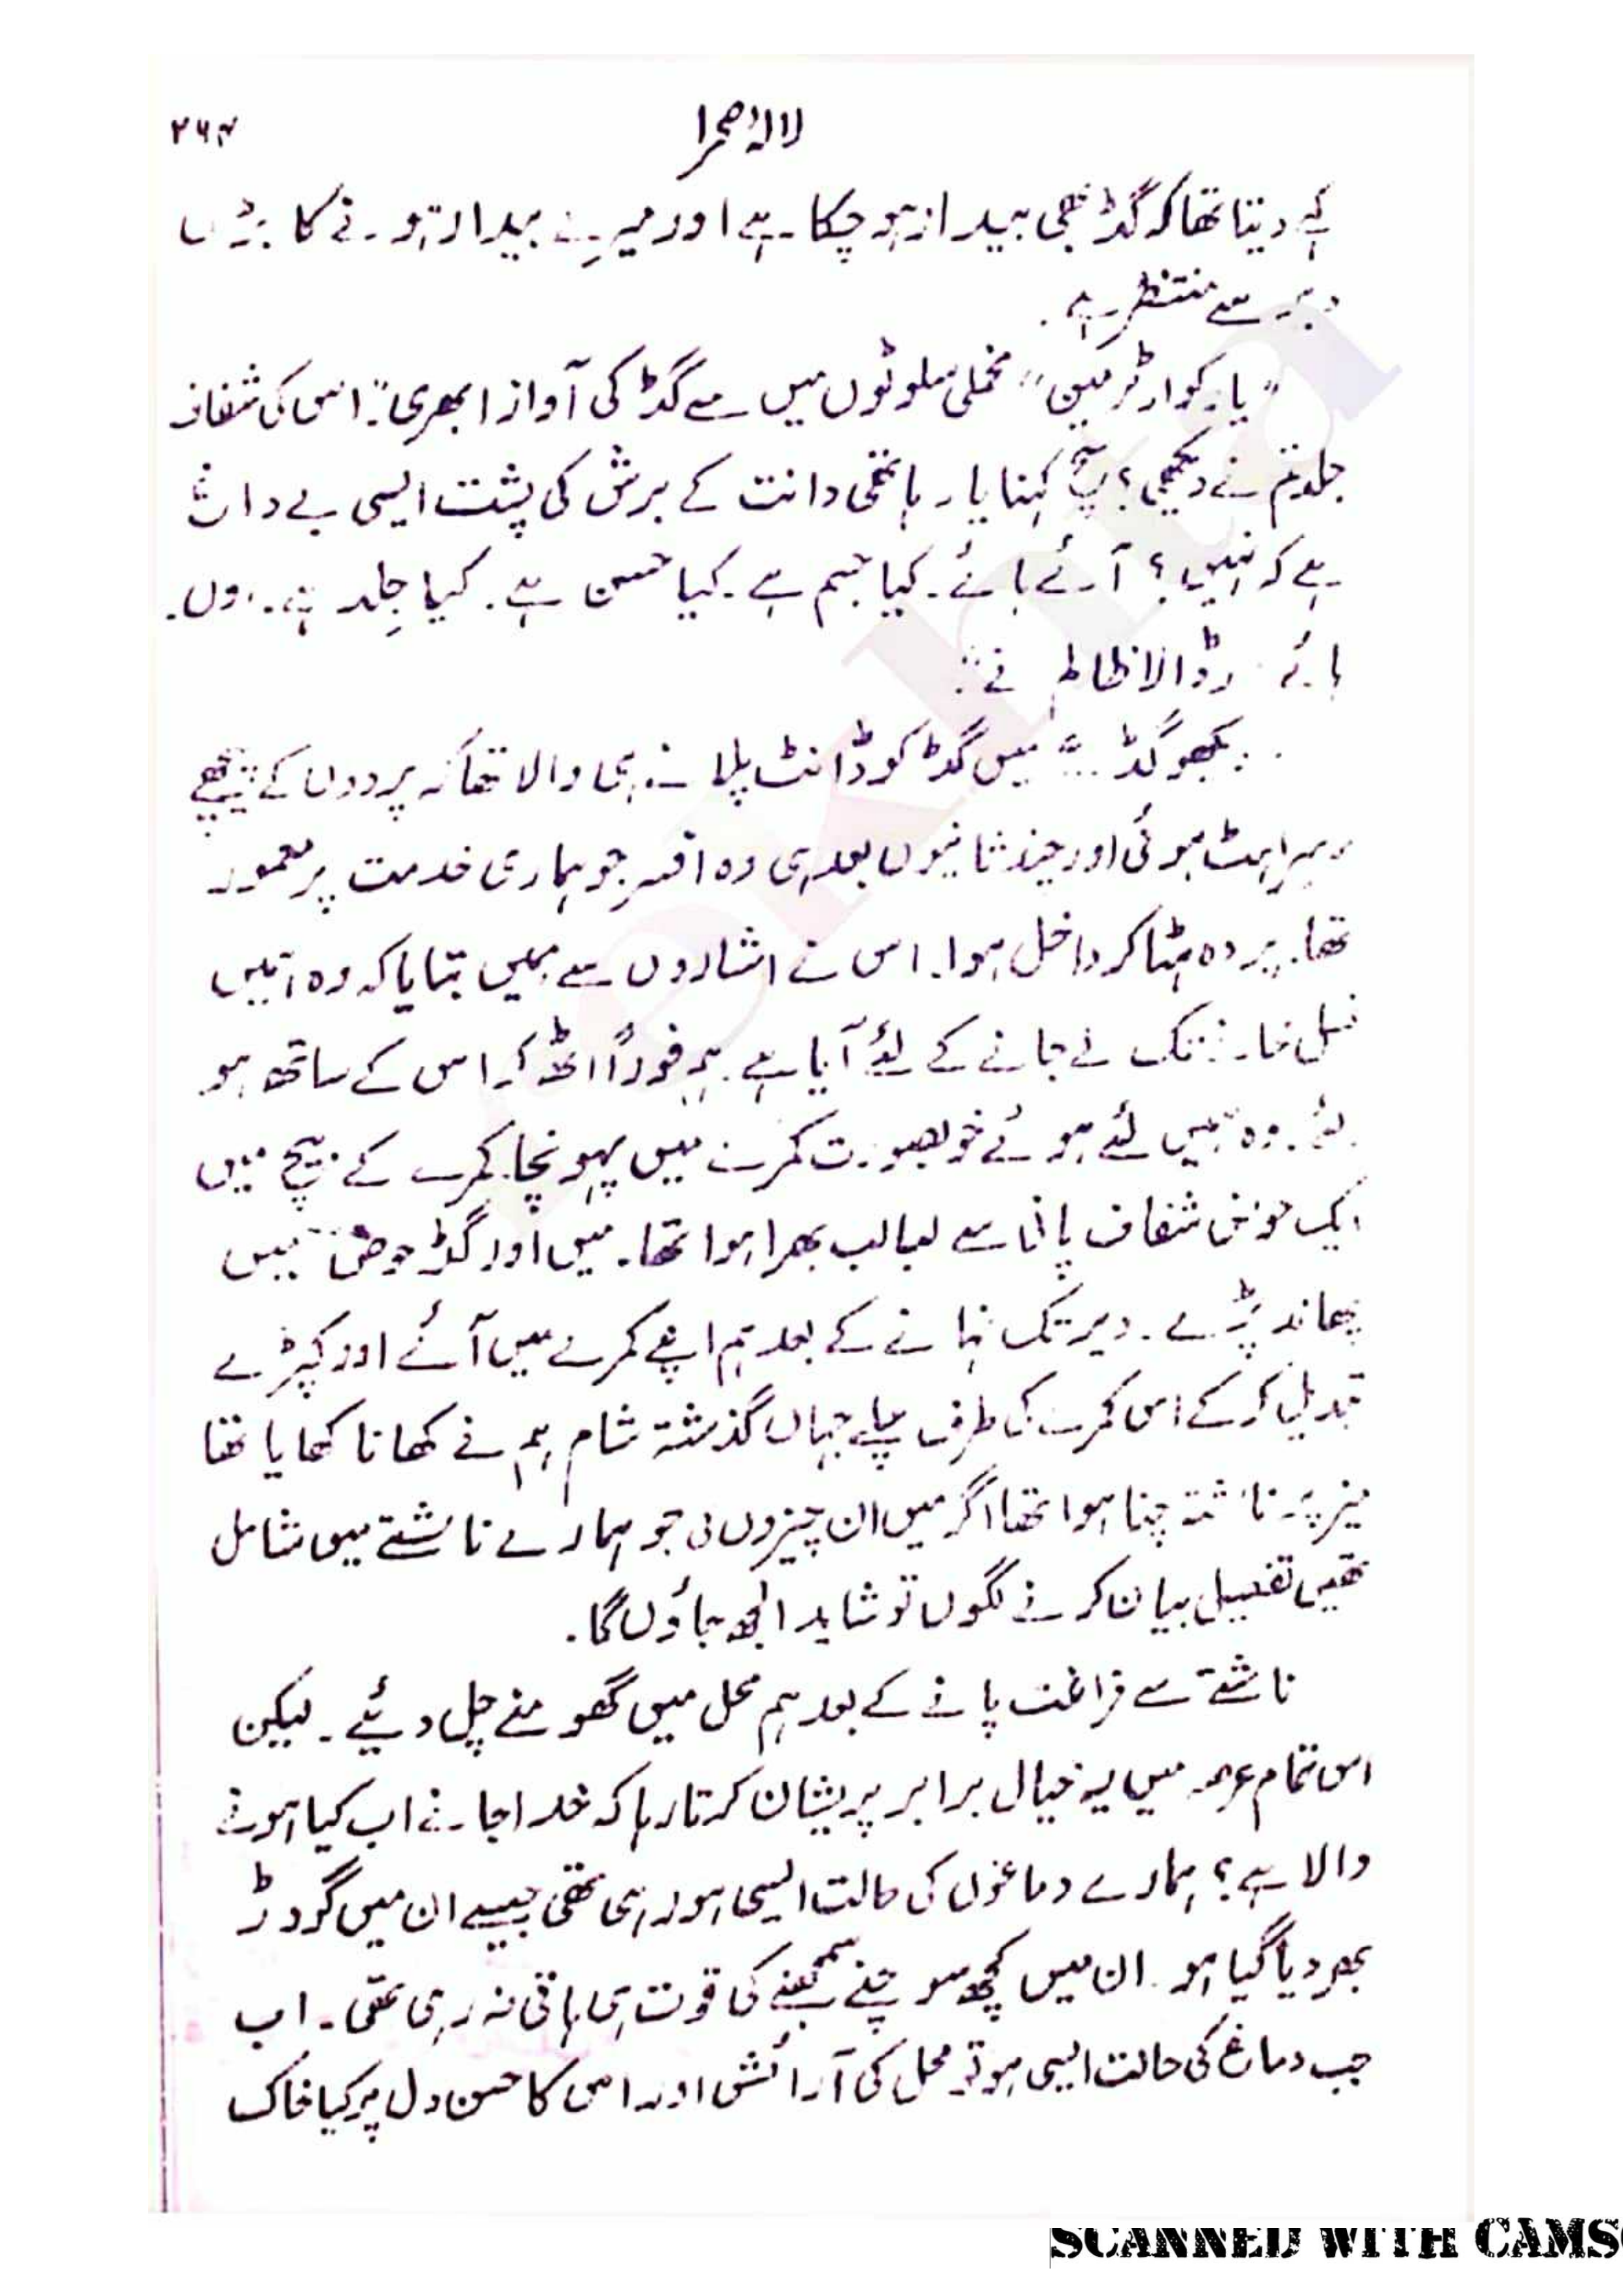 لالۂ صحرا ۲۶۴
کہے دیتا تھا کہ گڈ بھی بیدار ہو چکا ہے اور میرے بیدار ہونے کا بڑی
دیر سے منتظر ہے.
"یار کوارٹرمین" مخملی سلوٹوں میں سے گڈ کی آواز ابھری": اس کی شفاف
جلد تم نے دیکھی؟ سچ کہنا یار ہاتھی دانت کے برش کی پشت ایسی بے داغ
ہے کہ نہیں؟ آئے ہائے. کیا جسم ہے. کیا حسن ہے. کیا جِلد ہے.
ہائے ڈالا ظالم نے":
دیکھو گڈ..." میں گڈ کو ڈانٹ پلانے ہی والا تھا کہ پردوں کے پیچھے
سرسراہٹ ہوئی اور چند ثانیوں بعد ہی وہ افسر جو ہماری خدمت پر معمور
تھا. پردہ ہٹا کر داخل ہوا. اس نے اشاروں سے ہمیں بتایا کہ وہ ہمیں
غسل خانے تک لے جانے کے لئے آیا ہے. ہم فوراً اٹھ کر اس کے ساتھ ہو
لئے. وہ ہمیں لئے ہوئے خوبصورت کمرے میں پہونچا. کمرے کے بیچ میں
ایک حوض شفاف پانی سے لبالب بھرا ہوا تھا. میں اور گڈ حوض میں
پھاند پڑے. دیر تک نہانے کے بعد ہم اپنے کمرے میں آئے اور کپڑے
تبدیل کر کے اس کمرے کی طرف چلے جہاں گذشتہ شام ہم نے کھانا کھایا تھا
میز پر ناشتہ چنا ہوا تھا اگر میں ان چیزوں کی جو ہمارے ناشتے میں شامل
تھیں تفصیل بیان کرنے لگوں تو شاید الجھ جاؤں گا.
ناشتے سے فراغت پانے کے بعد ہم محل میں گھومنے چل دئیے. لیکن
اس تمام عرصہ میں یہ خیال برابر پریشان کرتا رہا کہ خدا جانے اب کیا ہونے
والا ہے؟ ہمارے دماغوں کی حالت ایسی ہو رہی تھی جیسے ان میں گودڑ
بھر دیا گیا ہو. ان میں کچھ سوچنے سمجھنے کی قوت ہی باقی نہ رہی تھی. اب
جب دماغ کی حالت ایسی ہو تو محل کی آرائش اور اس کا حسن دل پر کیا خاک
SCANNED WITH CAMS